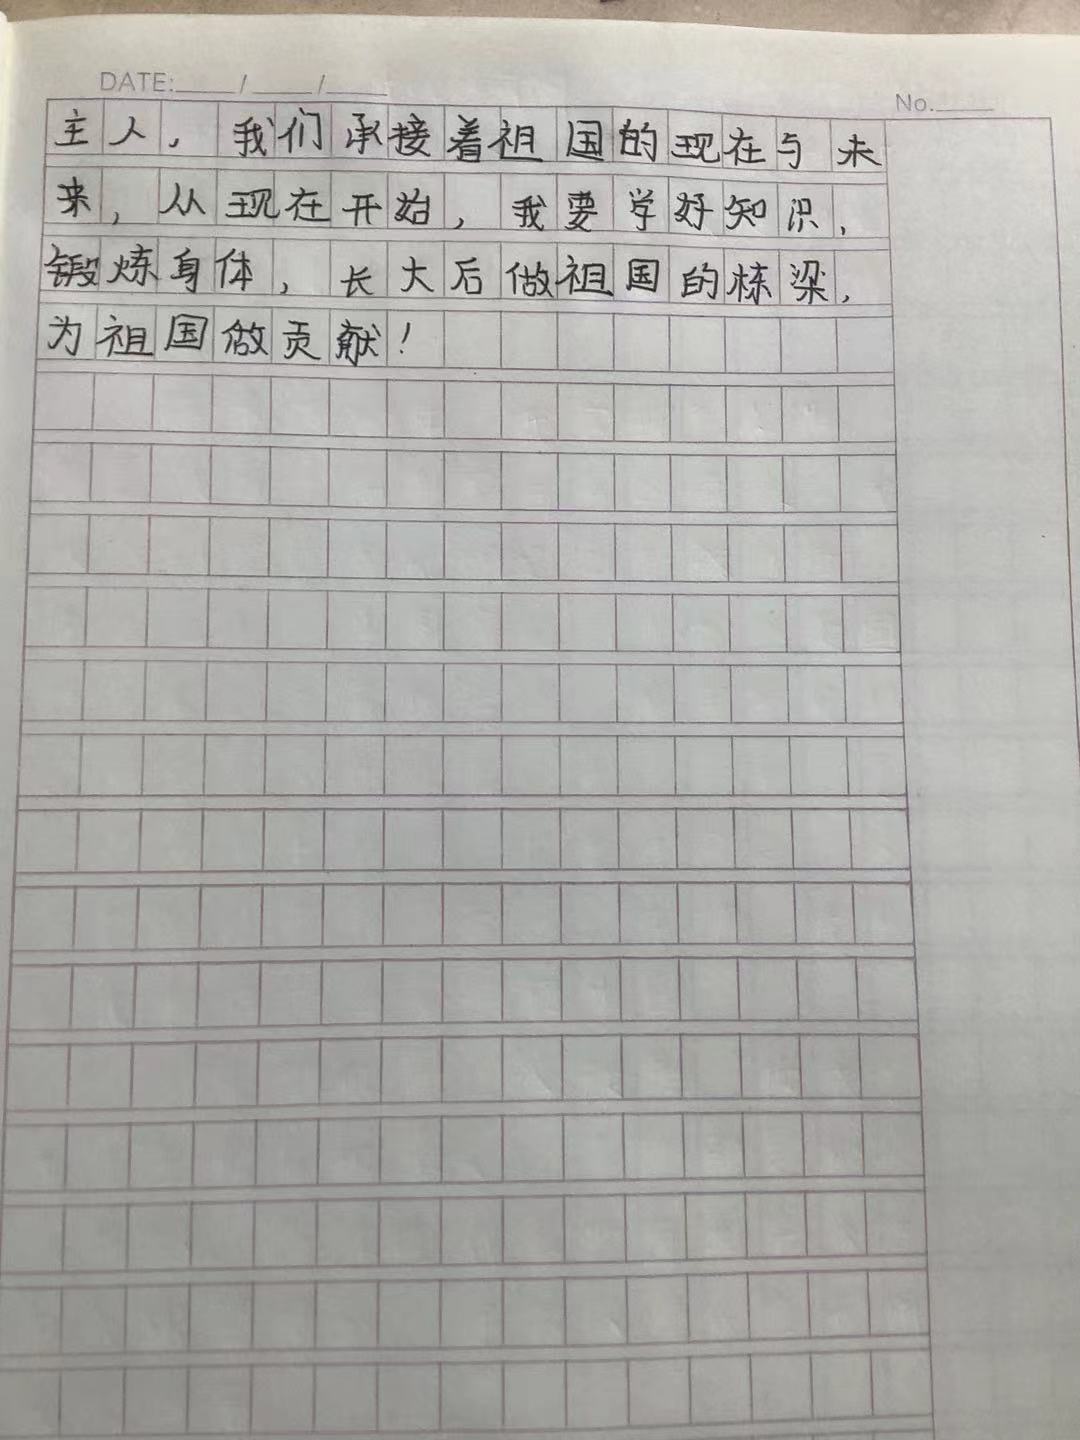 DATE:____/____/____
No.____
主人，我们承接着祖国的现在与未
来，从现在开始，我要学好知识，
锻炼身体，长大后做祖国的栋梁，
为祖国做贡献！